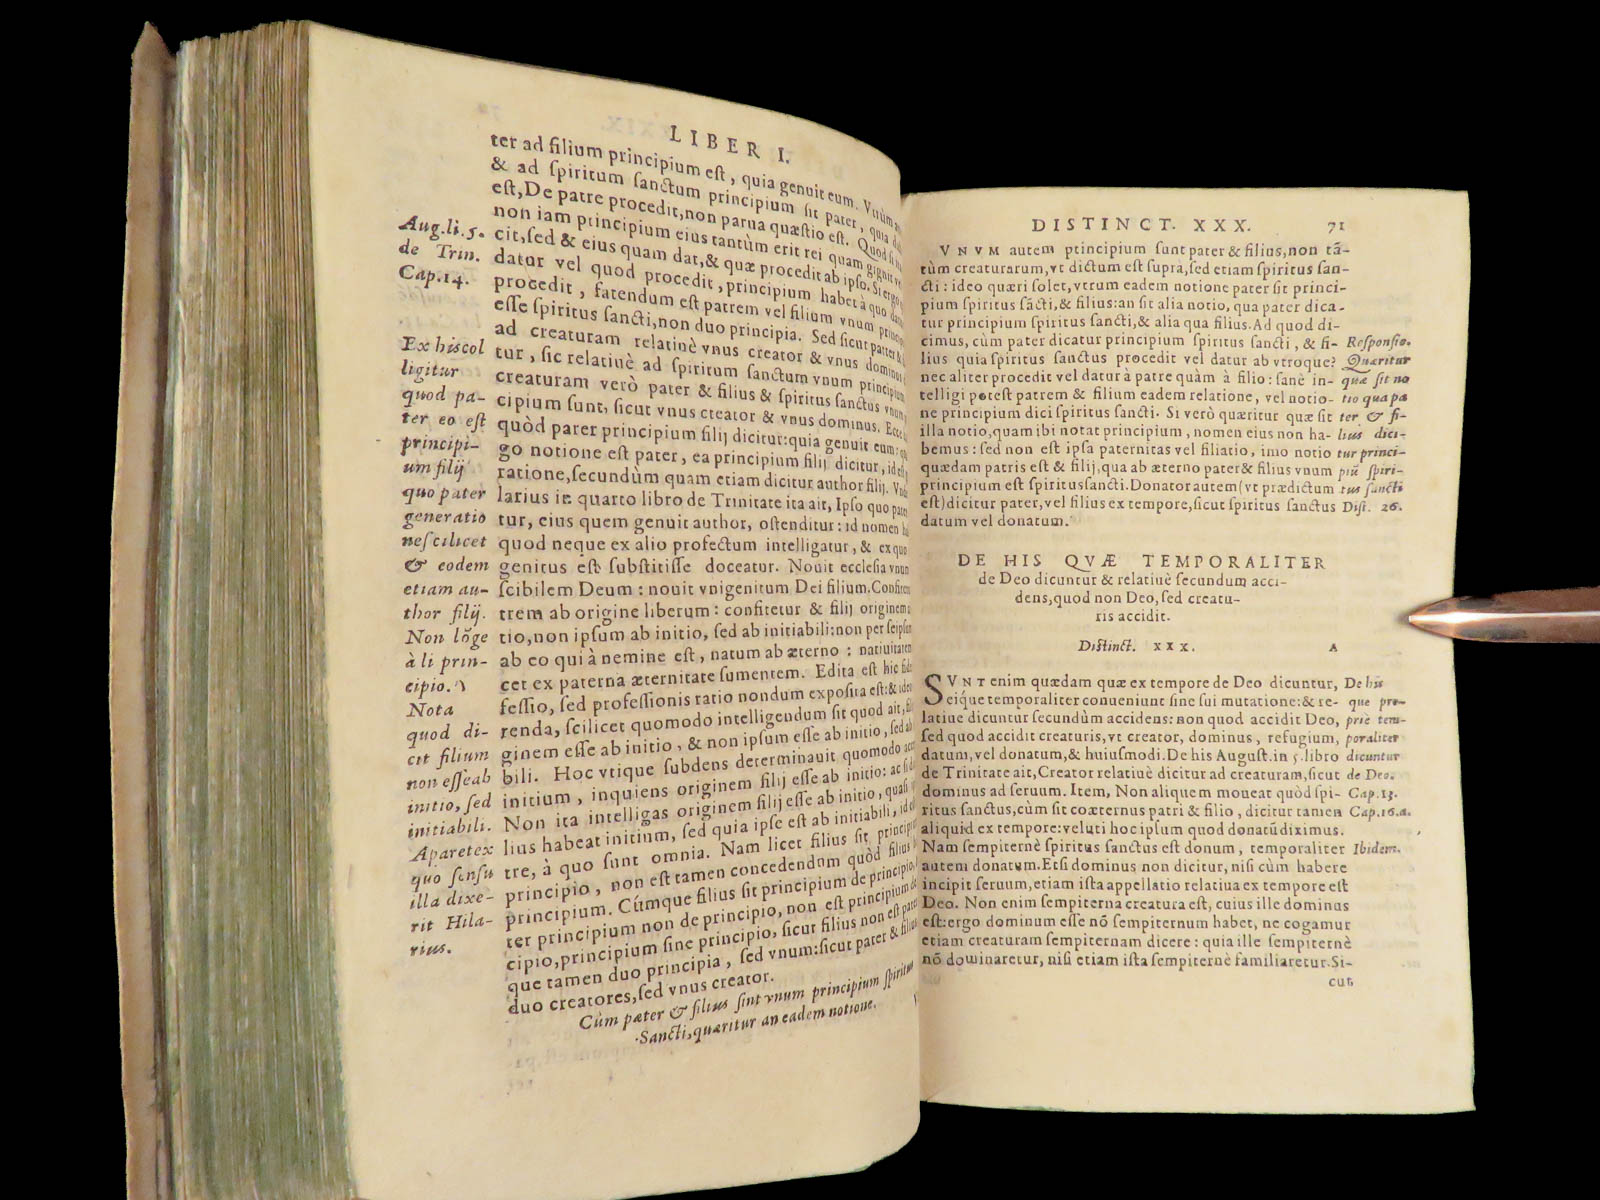 LIBER I.
ter ad filium principium eſt, quia genuit eum. Vtrùm
& ad ſpiritum ſanctum principium ſit pater, quia
eſt, De patre procedit, non parua quæſtio eſt. Quod ſi
non iam principium eius tantùm erit rei quam gignit
cit, ſed & eius quam dat, & quæ procedit ab ipſo. Si ergo
datur vel quod procedit, principium habet à quo
procedit, fatendum eſt patrem vel filium vnum
eſſe ſpiritus ſancti, non duo principia. Sed ſicut pater &
ad creaturam relatiuè vnus creator & vnus dominus
tur, ſic relatiuè ad ſpiritum ſanctum vnum principium
creaturam verò pater & filius & ſpiritus ſanctus vnum
cipium ſunt, ſicut vnus creator & vnus dominus. Ecce
quòd pater principium filij dicitur: quia genuit eum:
go notione eſt pater, ea principium filij dicitur, id eſt
ratione, ſecundùm quam etiam dicitur author filij.
larius in quarto libro de Trinitate ita ait, Ipſo quo pater
tur, eius quem genuit author, oſtenditur: id nomen
quod neque ex alio profectum intelligatur, & ex quo
genitus eſt ſubſtitiſſe doceatur. Nouit eccleſia vnum
ſcibilem Deum: nouit vnigenitum Dei filium. Confitetur
trem ab origine liberum: confitetur & filij originem
tio, non ipſum ab initio, ſed ab initiabili: non per ſeipſum
ab eo qui à nemine eſt, natum ab æterno: natiuitatem
cet ex paterna æternitate ſumentem. Edita eſt hic
feſſio, ſed profeſſionis ratio nondum expoſita eſt: & ideo
renda, ſcilicet quomodo intelligendum ſit quod ait,
ginem eſſe ab initio, & non ipſum eſſe ab initio, ſed
bili. Hoc vtique ſubdens determinauit quomodo
initium, inquiens originem filij eſſe ab initio: ac ſi
Non ita intelligas originem filij eſſe ab initio, quaſi
lius habeat initium, ſed quia ipſe eſt ab initiabili, id
tre, à quo ſunt omnia. Nam licet filius ſit
principio, non eſt tamen concedendum quòd filius
principium. Cúmque filius ſit principium de principio,
ter principium non de principio, non eſt principium
cipio, principium ſine principio, ſicut filius non eſt pater
que tamen duo principia, ſed vnum: ſicut pater & filius
duo creatores, ſed vnus creator.
Cùm pater & filius ſint vnum principium ſpiritus
Sancti, quæritur an eadem notione.
Aug. li. 5.
de Trin.
Cap. 14.
Ex his col
ligitur
quod pa-
ter eo eſt
principi-
um filij
quo pater
generatio
ne ſcilicet
& eodem
etiam au-
thor filij.
Non lõge
à li prin-
cipio.
Nota
quod di-
cit filium
non eſſe ab
initio, ſed
initiabili.
Aparet ex
quo ſenſu
illa dixe-
rit Hila-
rius.
DISTINCT. XXX. 71
VNVM autem principium ſunt pater & filius, non tã-
tùm creaturarum, vt dictum eſt ſuprà, ſed etiam ſpiritus ſan-
cti: ideo quæri ſolet, vtrum eadem notione pater ſit princi-
pium ſpiritus sãcti, & filius: an ſit alia notio, qua pater dica-
tur principium ſpiritus ſancti, & alia qua filius. Ad quod di-
cimus, cùm pater dicatur principium ſpiritus ſancti, & fi-
lius quia ſpiritus ſanctus procedit vel datur ab vtroque?
nec aliter procedit vel datur à patre quàm à filio: ſanè in-
telligi poteſt patrem & filium eadem relatione, vel notio-
ne principium dici ſpiritus ſancti. Si verò quæritur quæ ſit
illa notio, quam ibi notat principium, nomen eius non ha-
bemus: ſed non eſt ipſa paternitas vel filiatio, imo notio
quædam patris eſt & filij, qua ab æterno pater & filius vnum
principium eſt ſpiritus ſancti. Donator autem (vt prædictum
eſt) dicitur pater, vel filius ex tempore, ſicut ſpiritus ſanctus
datum vel donatum.
Reſponſio.
Quæritur
quæ ſit no
tio qua pa
ter & fi-
lius dici-
tur princi-
piũ ſpiri-
tus ſancti
Diſt. 26.
DE HIS QVÆ TEMPORALITER
de Deo dicuntur & relatiuè ſecundum acci-
dens, quod non Deo, ſed creatu-
ris accidit.
Diſtinct. XXX. A
SVNT enim quædam quæ ex tempore de Deo dicuntur,
eique temporaliter conueniunt ſine ſui mutatione: & re-
latiue dicuntur ſecundùm accidens: non quod accidit Deo,
ſed quod accidit creaturis, vt creator, dominus, refugium,
datum, vel donatum, & huiuſmodi. De his Auguſt. in 5. libro
de Trinitate ait, Creator relatiuè dicitur ad creaturam, ſicut
dominus ad ſeruum. Item, Non aliquem moueat quòd ſpi-
ritus ſanctus, cùm ſit coæternus patri & filio, dicitur tamen
aliquid ex tempore: veluti hoc ipſum quod donatũ diximus.
Nam ſempiternè ſpiritus ſanctus eſt donum, temporaliter
autem donatum. Etſi dominus non dicitur, niſi cùm habere
incipit ſeruum, etiam iſta appellatio relatiua ex tempore eſt
Deo. Non enim ſempiterna creatura eſt, cuius ille dominus
eſt: ergo dominum eſſe nõ ſempiternum habet, ne cogamur
etiam creaturam ſempiternam dicere: quia ille ſempiternè
nõ dominaretur, niſi etiam iſta ſempiternè familiaretur. Si-
cut
De his
que pro-
prie tem-
poraliter
dicuntur
de Deo.
Cap. 13.
Cap. 16. a.
Ibidem.